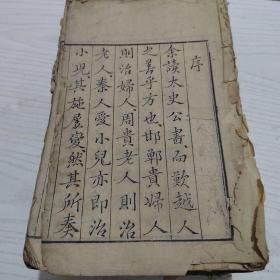 序
余讀太史公書而歎越人
之善乎方也邯鄲貴婦人
則治婦人周貴老人則治
老人秦人愛小兒亦即治
小兒其施屢變然其所奏